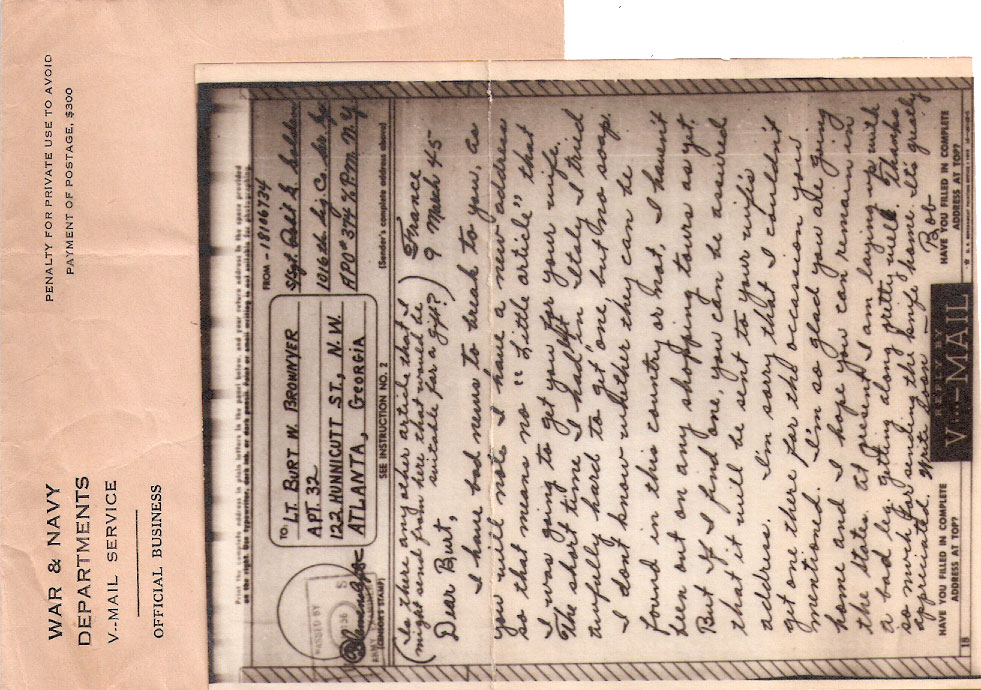 WAR & NAVY
DEPARTMENTS
V--MAIL SERVICE
OFFICIAL BUSINESS
PENALTY FOR PRIVATE USE TO AVOID
PAYMENT OF POSTAGE, $300
Print the complete address in plain letters in the panel below, and your return address in the space provided
on the right. Use typewriter, dark ink, or dark pencil. Faint or small writing is not suitable for photographing.
PASSED BY
S
ARMY
(CENSOR'S STAMP)
TO: LT. BURT W. BROWNYER
APT. 32
122 HUNNICUTT ST., N.W.
ATLANTA, GEORGIA
SEE INSTRUCTION NO. 2
FROM - 18106734
S/Sgt.
1016th Sig Co. Sv. Gp
APO #374 % P.M. N.Y.
(Sender's complete address above)
(Is there any other article that I
might send from here that would be
suitable for a gift?)
France
9 March 45
Dear Burt,
I have bad news to break to you, as
you will note I have a new address
so that means no "Little article" that
I was going to get you for your wife.
The short time I had left in Italy I tried
awfully hard to get one but no soap.
I don't know whether they can be
found in this country or not, I haven't
been out on any shopping tours as yet.
But if I find one, you can be assured
that it will be sent to your wife's
address. I'm sorry that I couldn't
get one there for the occassion you
mentioned. I'm so glad you are going
home and I hope you can remain in
the States. At present I am laying up with
a bad leg getting along pretty well. Thanks
so much for sending the knife home. It's greatly
appreciated. Write soon —
Bob
HAVE YOU FILLED IN COMPLETE
ADDRESS AT TOP?
V···–MAIL
HAVE YOU FILLED IN COMPLETE
ADDRESS AT TOP?